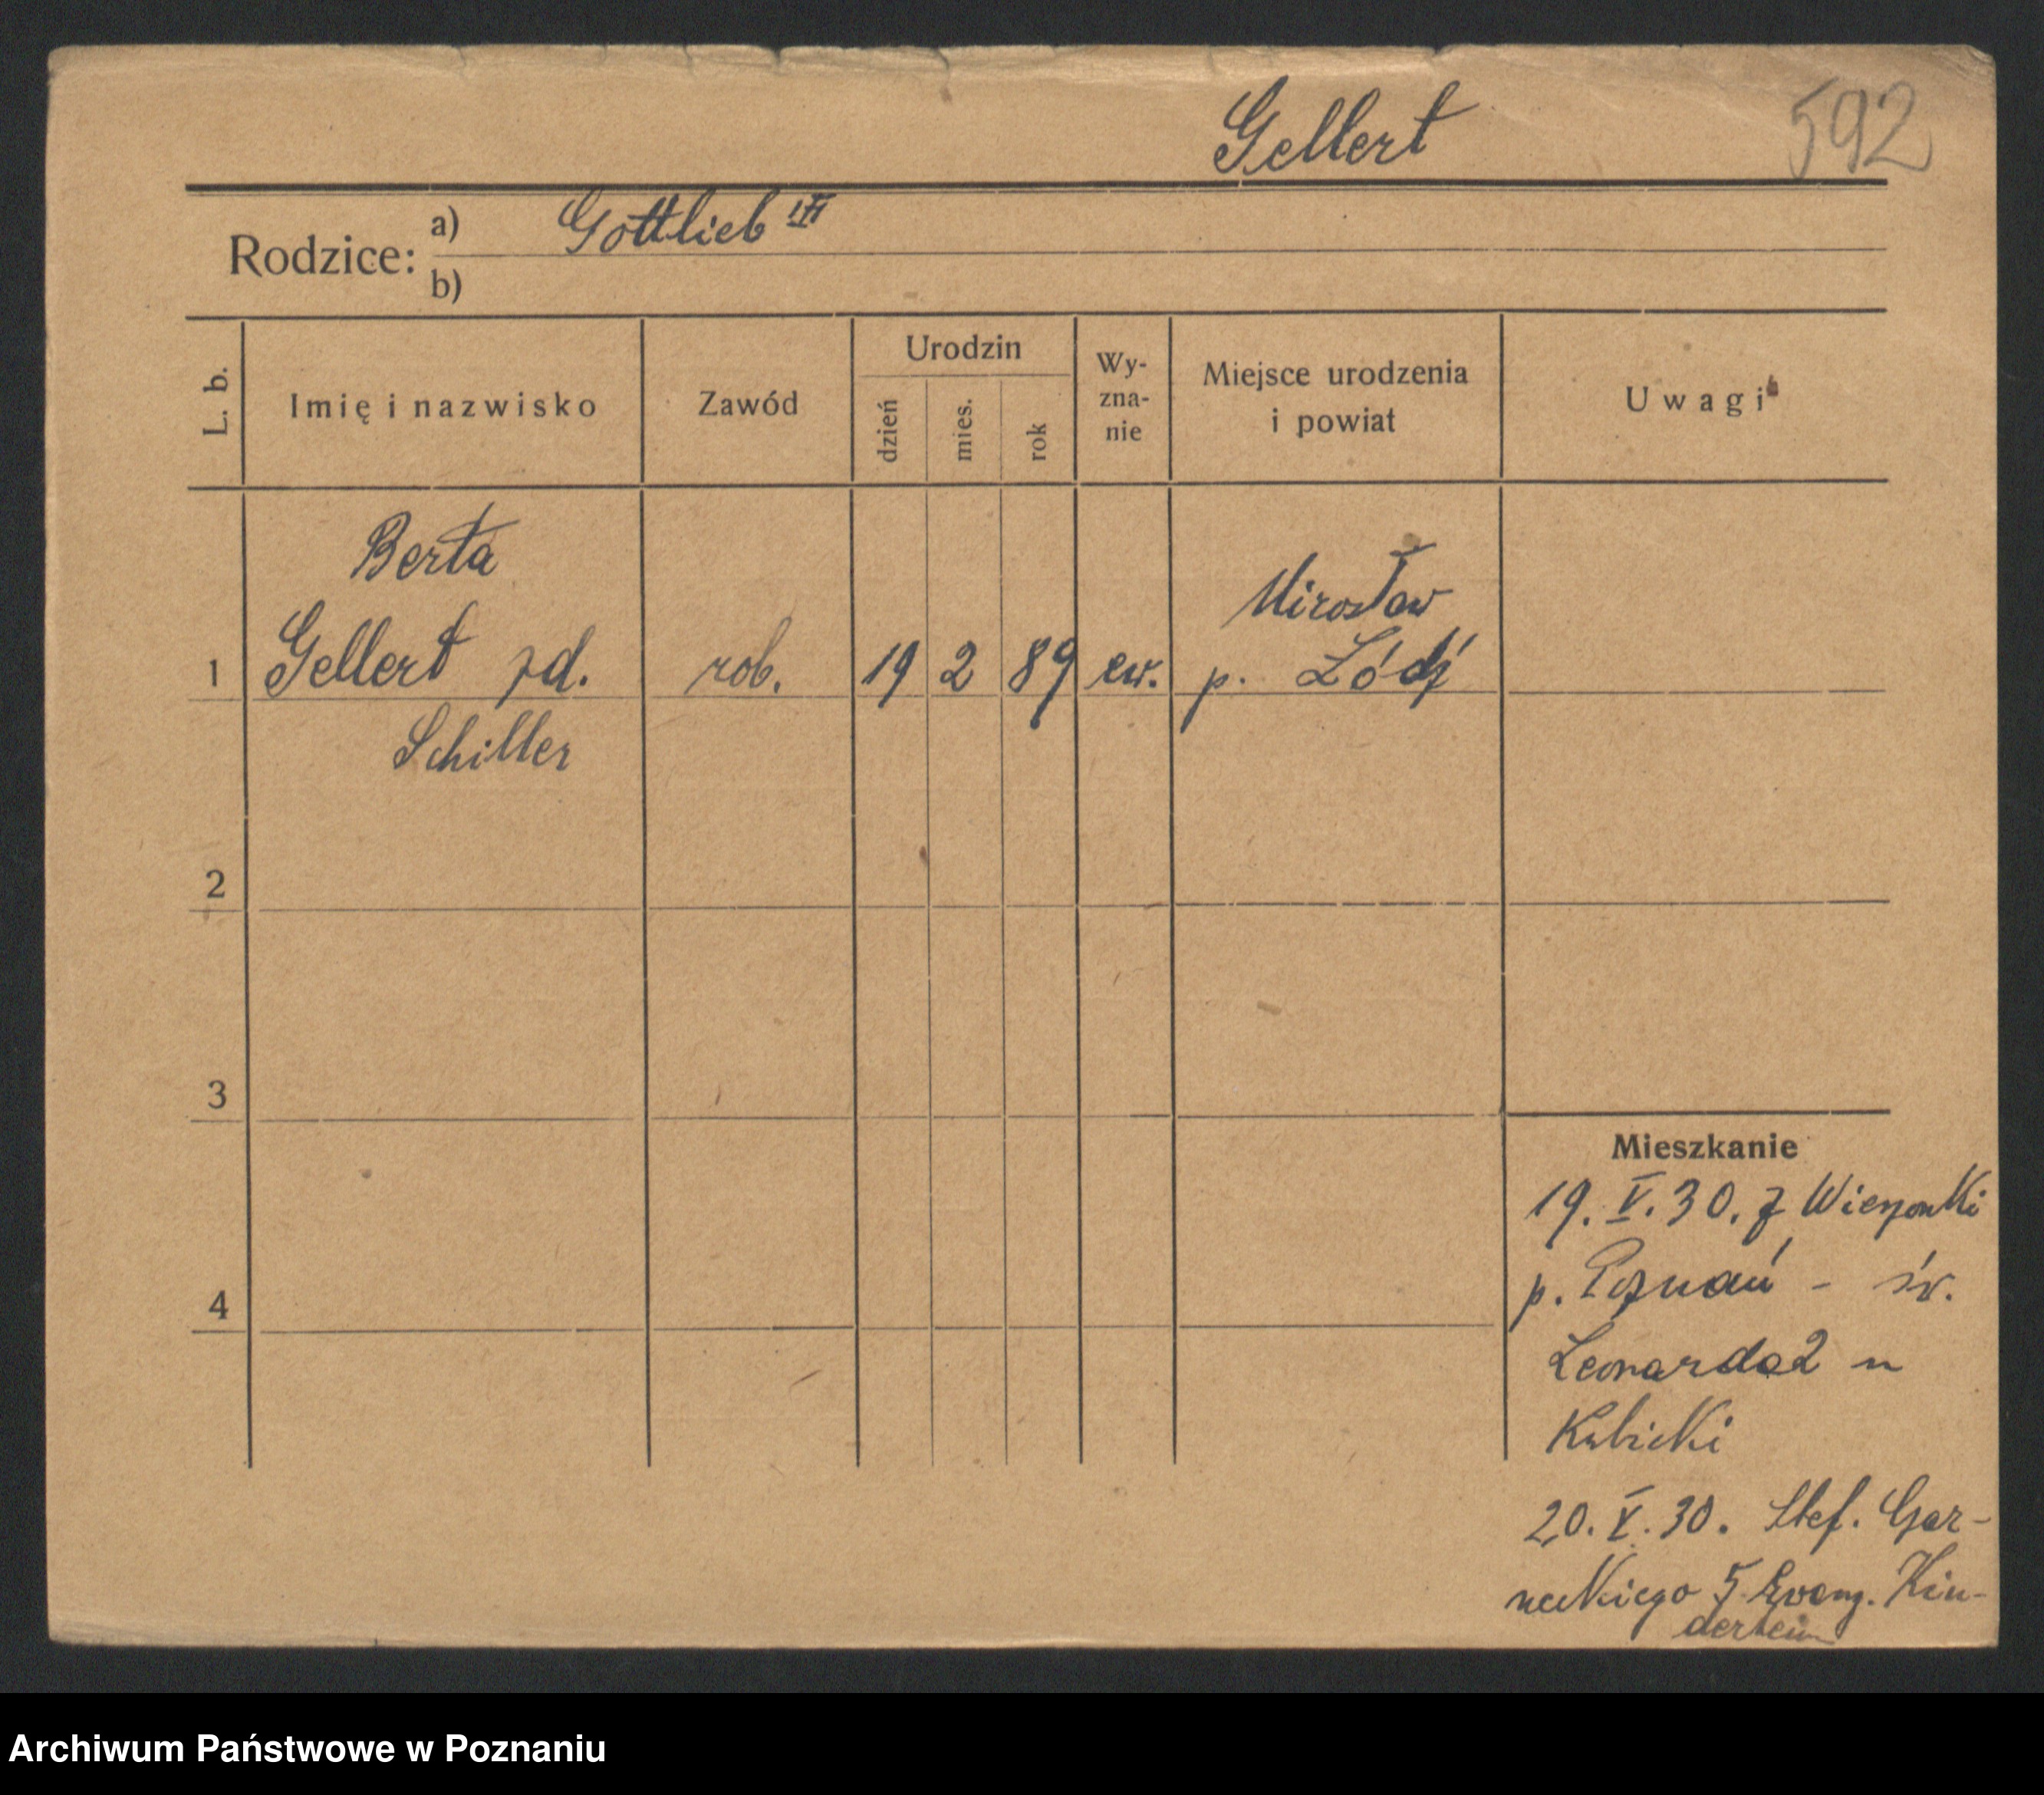 Gellert 592
Rodzice: a) Gottlieb III
b)
L. b. Imię i nazwisko Zawód Urodzin dzień mies. rok Wy-zna-nie Miejsce urodzenia i powiat Uwagi
Berta
Mirosław
1 Gellert zd. rob. 19 2 89 ew. p. Łódź
Schiller
2
3
Mieszkanie
19. V. 30. z Wierzonki
4 p. Poznań - św.
Leonarda 2 u
Kubicki
20. V. 30. Stef. Czar-
neckiego 5 Evang. Kin-
derheim
Archiwum Państwowe w Poznaniu